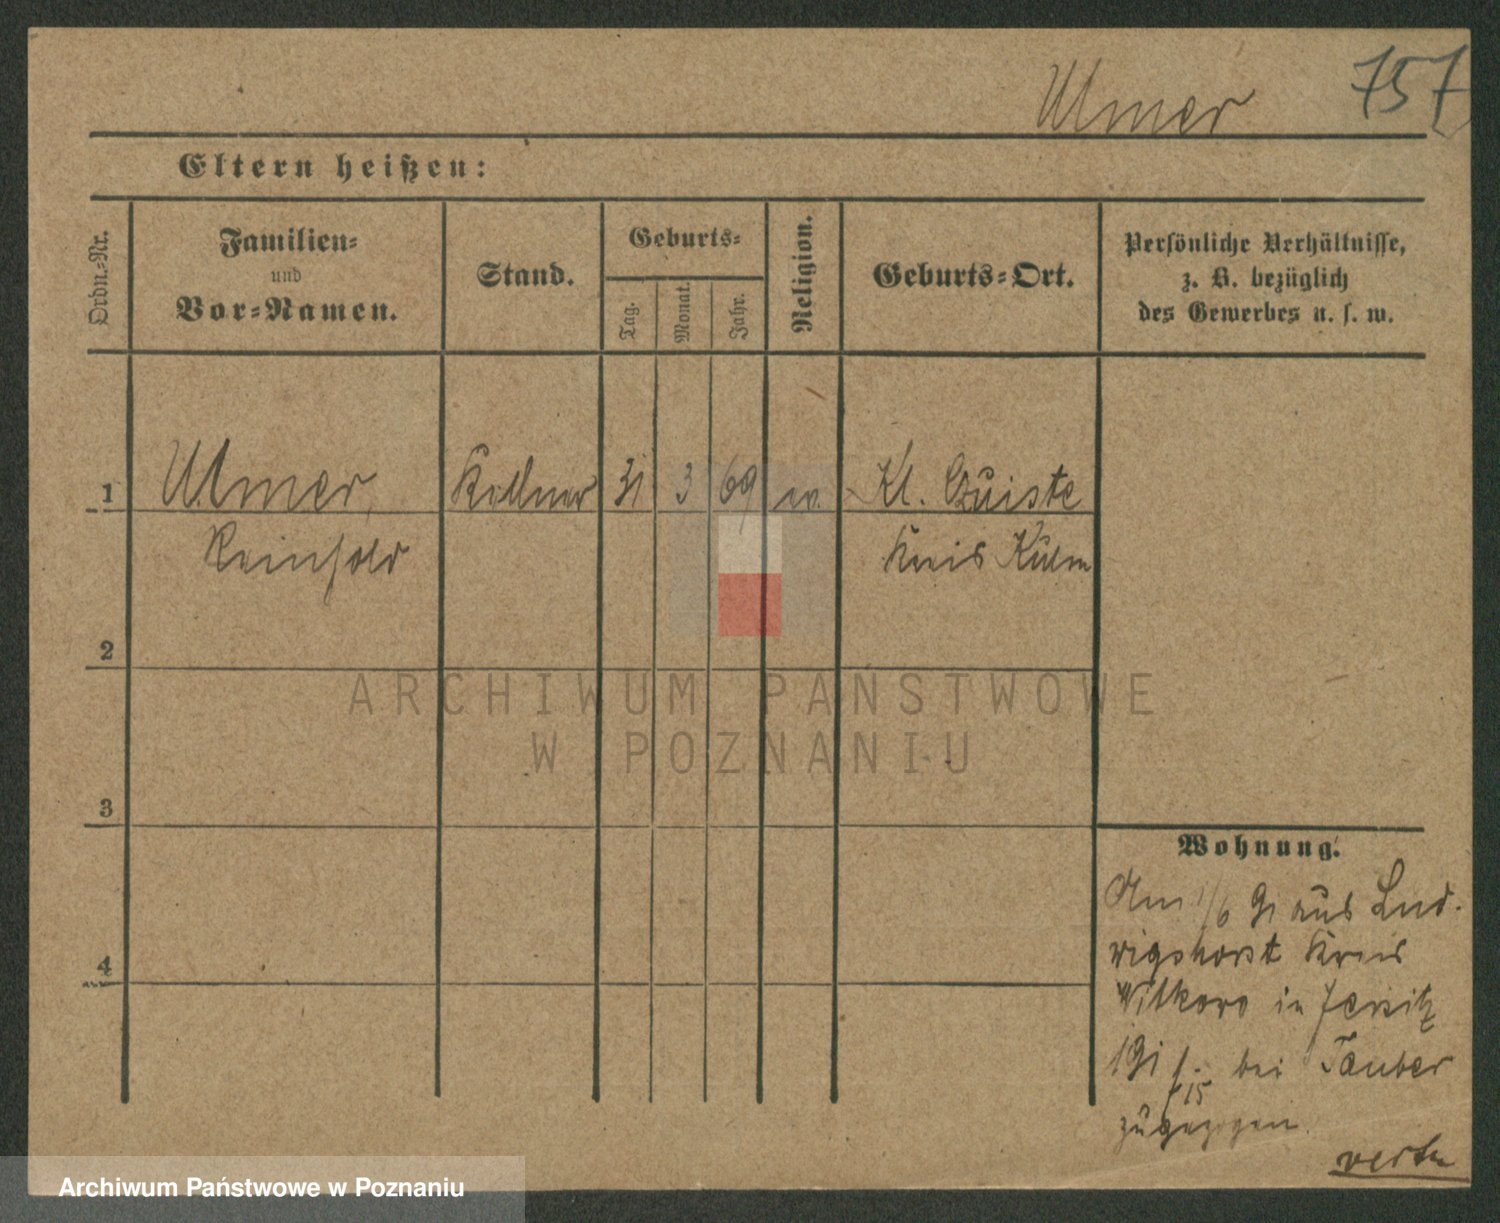 Ulmer 757
Eltern heißen:
Ordn.-Nr.
Familien-
und
Vor-Namen.
Stand.
Geburts-
Tag.
Monat.
Jahr.
Religion.
Geburts-Ort.
Persönliche Verhältnisse,
z. B. bezüglich
des Gewerbes u. s. w.
1 Ulmer, Kellner 31 3 69 ev. Kl. Czuiste
Reinhold Kreis Kulm
2
ARCHIWUM PAŃSTWOWE
W POZNANIU
3
4
Wohnung.
Am 1/6 91 aus Lud-
wigshorst Kreis
Witkowo in Jersitz
191 bei Tauber
zugezogen.
Archiwum Państwowe w Poznaniu